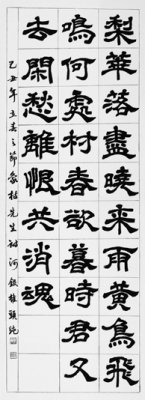 梨華落盡曉来雨黃鳥飛
鳴何處村春欲暮時君又
去閑愁離恨共消魂
乙丑年立春之節先生